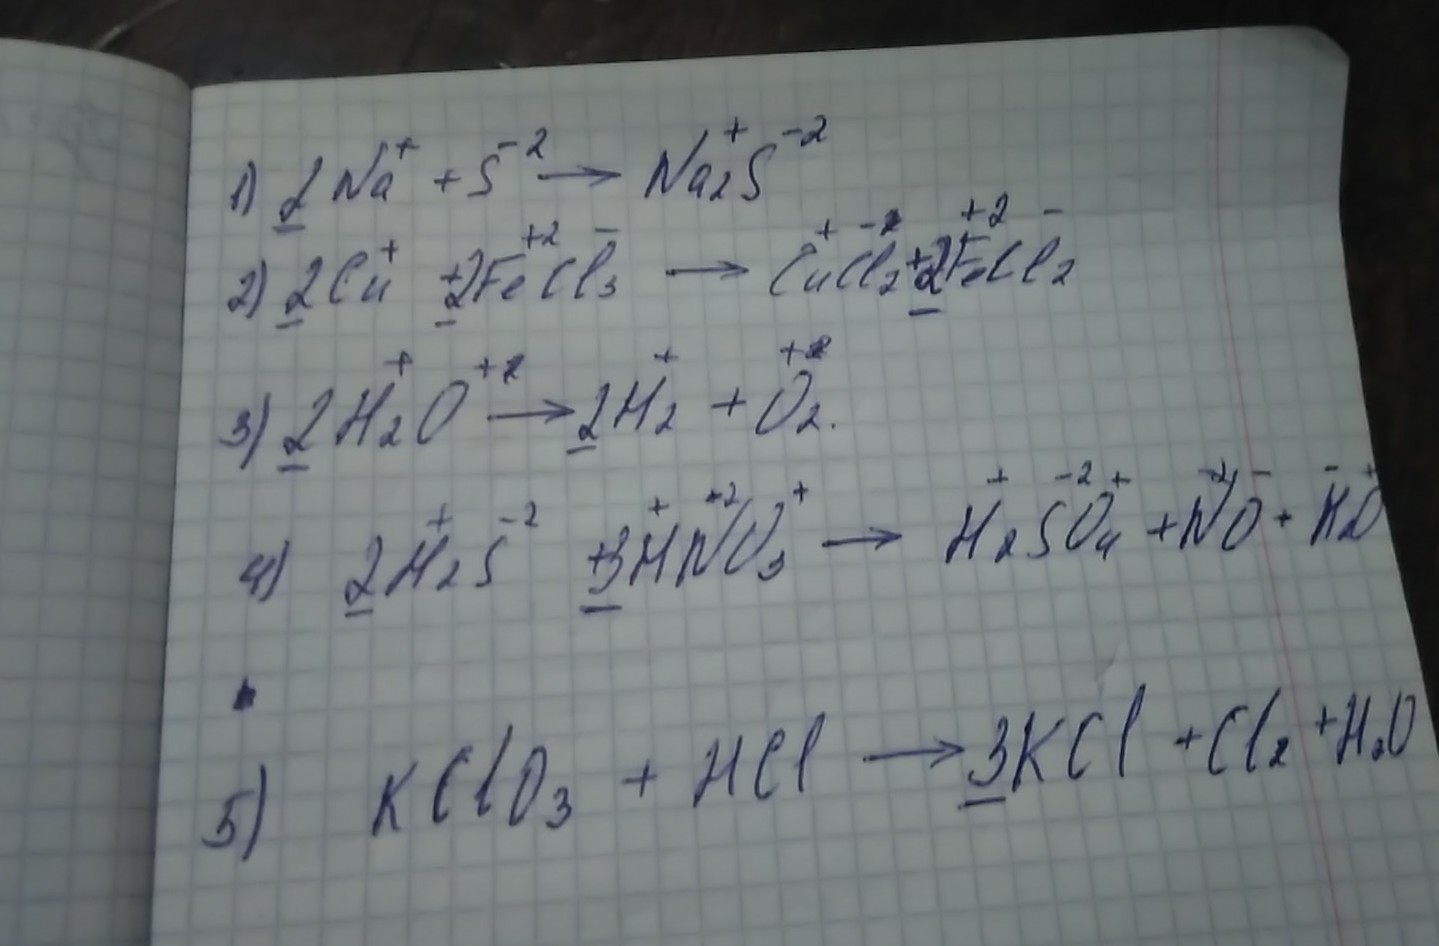 1) 2Na⁺ + S⁻² → Na₂⁺S⁻²
2) 2Cu⁺ +2Fe⁺²Cl₃⁻ → Cu⁺Cl₂⁻² +2Fe⁺²Cl₂⁻
3) 2H₂⁺O⁺² → 2H₂⁺ + O₂⁺².
4) 2H₂⁺S⁻² +3H⁺N⁺²O₃⁺ → H₂⁺S⁻²O₄⁺ + N⁻²O⁻ + H₂⁻O⁺
5) KClO₃ + HCl → 3KCl + Cl₂ + H₂O